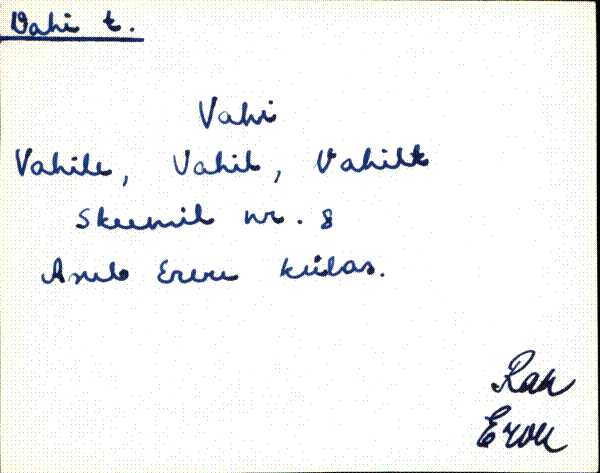 Vahi t.
Vahi
Vahile, Vahil, Vahilt
Skeemil nr. 8
Asub Ereru külas.
Rak